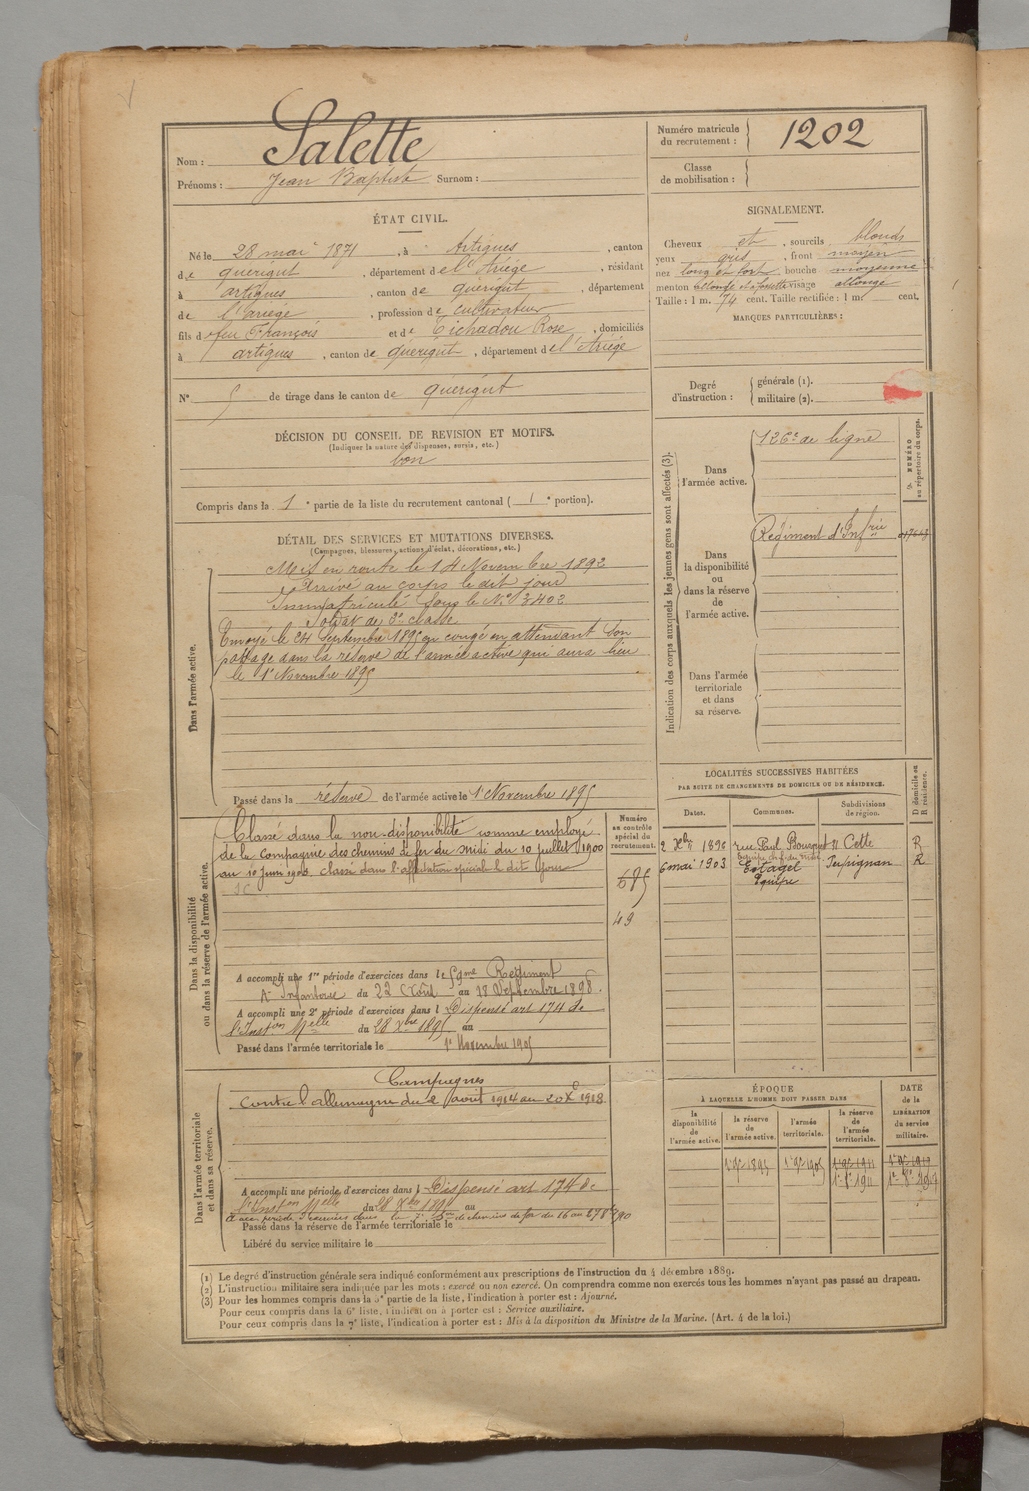 Nom : Salette
Prénoms : Jean Baptiste Surnom :
Numéro matricule du recrutement : 1202
Classe de mobilisation :
ÉTAT CIVIL.
Né le 28 mai 1871, à Artigues, canton
de querigut, département de l'Ariége, résidant
à artigues, canton de querigut, département
de l'Ariége, profession de cultivateur
fils de feu François et de Tichadou Rose, domiciliés
à artigues, canton de querigut, département de l'Ariége
N° 5 de tirage dans le canton de querigut
DÉCISION DU CONSEIL DE REVISION ET MOTIFS.
(Indiquer la nature des dispenses, sursis, etc.)
bon
Compris dans la 1e partie de la liste du recrutement cantonal (1e portion).
SIGNALEMENT.
Cheveux et, sourcils blonds
yeux gris, front moyen
nez long et fort, bouche moyenne
menton à fossette visage allongé
Taille : 1 m. 74 cent. Taille rectifiée : 1 m. cent.
MARQUES PARTICULIÈRES :
Degré d'instruction : générale (1).
militaire (2).
DÉTAIL DES SERVICES ET MUTATIONS DIVERSES.
(Campagnes, blessures, actions d'éclat, décorations, etc.)
Dans l'armée active.
Mis en route le 14 Novembre 1892
Arrivé au corps le dit jour
Immatriculé sous le N° 3402
Soldat de 2e classe
Envoyé le 24 Septembre 1895 en congé en attendant son
passage dans la réserve de l'armée active qui aura lieu
le 1r Novembre 1895
Passé dans la réserve de l'armée active le 1r Novembre 1895
Indication des corps auxquels les jeunes gens sont affectés (3).
NUMÉRO au répertoire du corps.
Dans l'armée active.
126e de ligne
Dans la disponibilité ou dans la réserve de l'armée active.
Régiment d'Infrie
Dans l'armée territoriale et dans sa réserve.
Dans la disponibilité ou dans la réserve de l'armée active.
Numéro au contrôle spécial du recrutement.
Classé dans la non-disponibilité comme employé
de la Compagnie des chemins de fer du Midi du 10 juillet 1900
au 10 Juin 1908. classé dans l'affectation spéciale le dit jour
675
49
A accompli une 1re période d'exercices dans le 59me Régiment
d'Infanterie du 22 Août au 18 Septembre 1898.
A accompli une 2e période d'exercices dans l Dispensé art 174 de
l'Inston Melle du 28 Xbre 1895 au
Passé dans l'armée territoriale le 1r Novembre 1905
LOCALITÉS SUCCESSIVES HABITÉES
PAR SUITE DE CHANGEMENTS DE DOMICILE OU DE RÉSIDENCE.
Dates. Communes. Subdivisions de région. D domicile ou R résidence.
2 Xbre 1896 rue Paul Bousquet Cette R
6 mai 1903 Estagel Perpignan R
Equipe
Dans l'armée territoriale et dans sa réserve.
Campagnes
Contre l'allemagne du 2 août 1914 au 20 Xe 1918
A accompli une période d'exercices dans l Dispensé art 174 de
l'Inston Melle du 28 Xbre 1895 au
Passé dans la réserve de l'armée territoriale le
Libéré du service militaire le
ÉPOQUE
À LAQUELLE L'HOMME DOIT PASSER DANS
DATE de la LIBÉRATION du service militaire.
la disponibilité de l'armée active.
la réserve de l'armée active.
l'armée territoriale.
la réserve de l'armée territoriale.
1r 9e 1895 1r 9e 1905 1r 9e 1911
(1) Le degré d'instruction générale sera indiqué conformément aux prescriptions de l'instruction du 4 décembre 1889.
(2) L'instruction militaire sera indiquée par les mots : exercé ou non exercé. On comprendra comme non exercés tous les hommes n'ayant pas passé au drapeau.
(3) Pour les hommes compris dans la 5e partie de la liste, l'indication à porter est : Ajourné.
Pour ceux compris dans la 6e liste, l'indication à porter est : Service auxiliaire.
Pour ceux compris dans la 7e liste, l'indication à porter est : Mis à la disposition du Ministre de la Marine. (Art. 4 de la loi.)